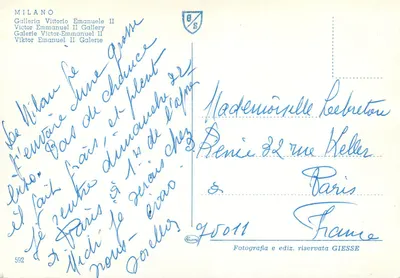 MILANO
Galleria Vittorio Emanuele II
Victor Emmanuel II Gallery
Galerie Victor-Emmanuel II
Viktor Emanuel II Galerie
G/S
De Milan je
t'envoie une grosse
bise. Pas de chance
il fait frais, et pleut
Je rentre dimanche 22
à Paris à 1h de l'après
Midi je serais chez
nous - ciao.
Mademoiselle Lebreton
Renée 22 rue Keller
à Paris
75011 France
592
Fotografia e ediz. riservata GIESSE